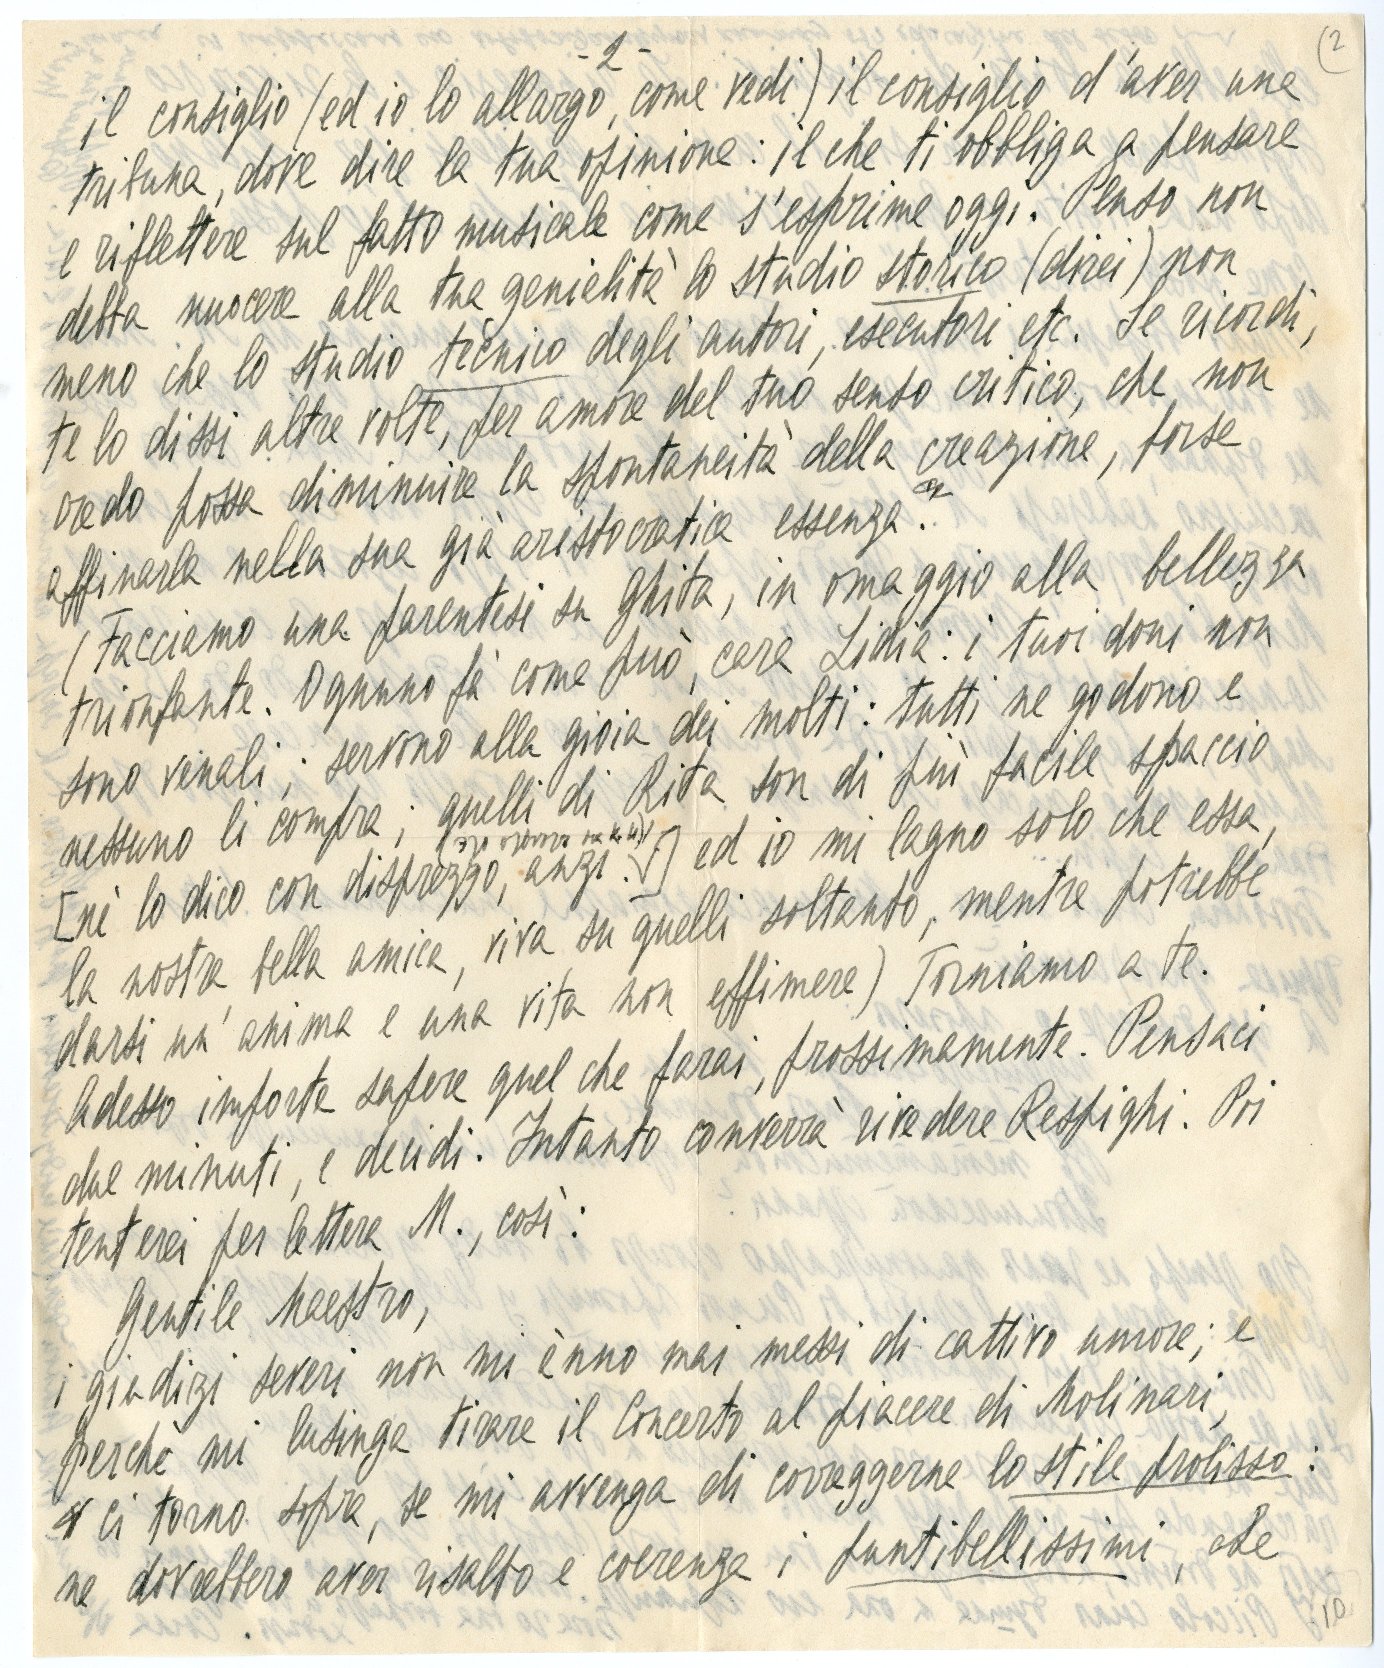 -2-
(2
il consiglio (ed io lo allargo, come vedi) il consiglio d'aver una
tribuna, dove dire la tua opinione: il che ti obbliga a pensare
e riflettere sul fatto musicale come s'esprime oggi. Penso non
debba nuocere alla tua genialità lo studio storico (direi) non
meno che lo studio tècnico degli autori, esecutori etc. Se ricordi,
te lo dissi altre volte, per amore del tuo senso critico, che non
credo possa diminuire la spontaneità della creazione, forse
affinarla nella sua già aristocratica essenza.
(Facciamo una parentesi su Ghita, in omaggio alla bellezza
trionfante. Ognuno fa come può, cara Lidia: i tuoi doni non
sono venali; servono alla gioia dei molti: tutti ne godono e
nessuno li compra; quelli di Rita son di più facile spaccio
[nè lo dico con disprezzo, anzi.] ed io mi lagno solo che essa,
la nostra bella amica, viva su quelli soltanto, mentre potrebbe
darsi un'anima e una vita non effimere) Torniamo a te.
Adesso importa sapere quel che farai, prossimamente. Pensaci
due minuti, e decidi. Intanto converrà rivedere Respighi. Poi
tenterei per lettera M., così:
Gentile Maestro,
i giudizi severi non mi ènno mai messi di cattivo umore; e
perchè mi lusinga tirare il Concerto al piacere di Molinari,
ci torno sopra, se mi avvenga di correggerne lo stile prolisso:
ne dovrebbero aver risalto e coerenza i punti bellissimi, che
10